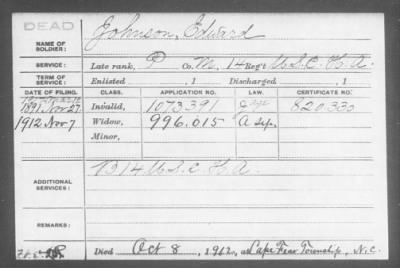 DEAD
NAME OF SOLDIER: Johnson, Edward
SERVICE: Late rank, P Co. M, 14 Reg't U.S.C.H.A.
TERM OF SERVICE: Enlisted , 1 Discharged , 1
DATE OF FILING. CLASS. APPLICATION NO. LAW. CERTIFICATE NO.
1891 Nov 27 Invalid, 1073.391 820.333
1912 Nov 7 Widow, 996.015 A Sep.
Minor,
ADDITIONAL SERVICES: 14 U.S.C.H.A.
REMARKS:
Died Oct 8, 1912, at Cape Fear Township, N.C.